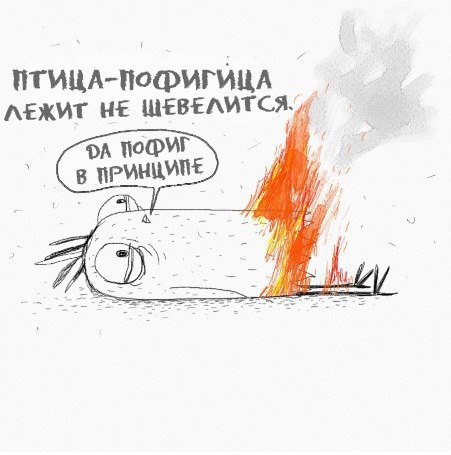 ПТИЦА-ПОФИГИЦА
ЛЕЖИТ НЕ ШЕВЕЛИТСЯ.
ДА ПОФИГ
В ПРИНЦИПЕ